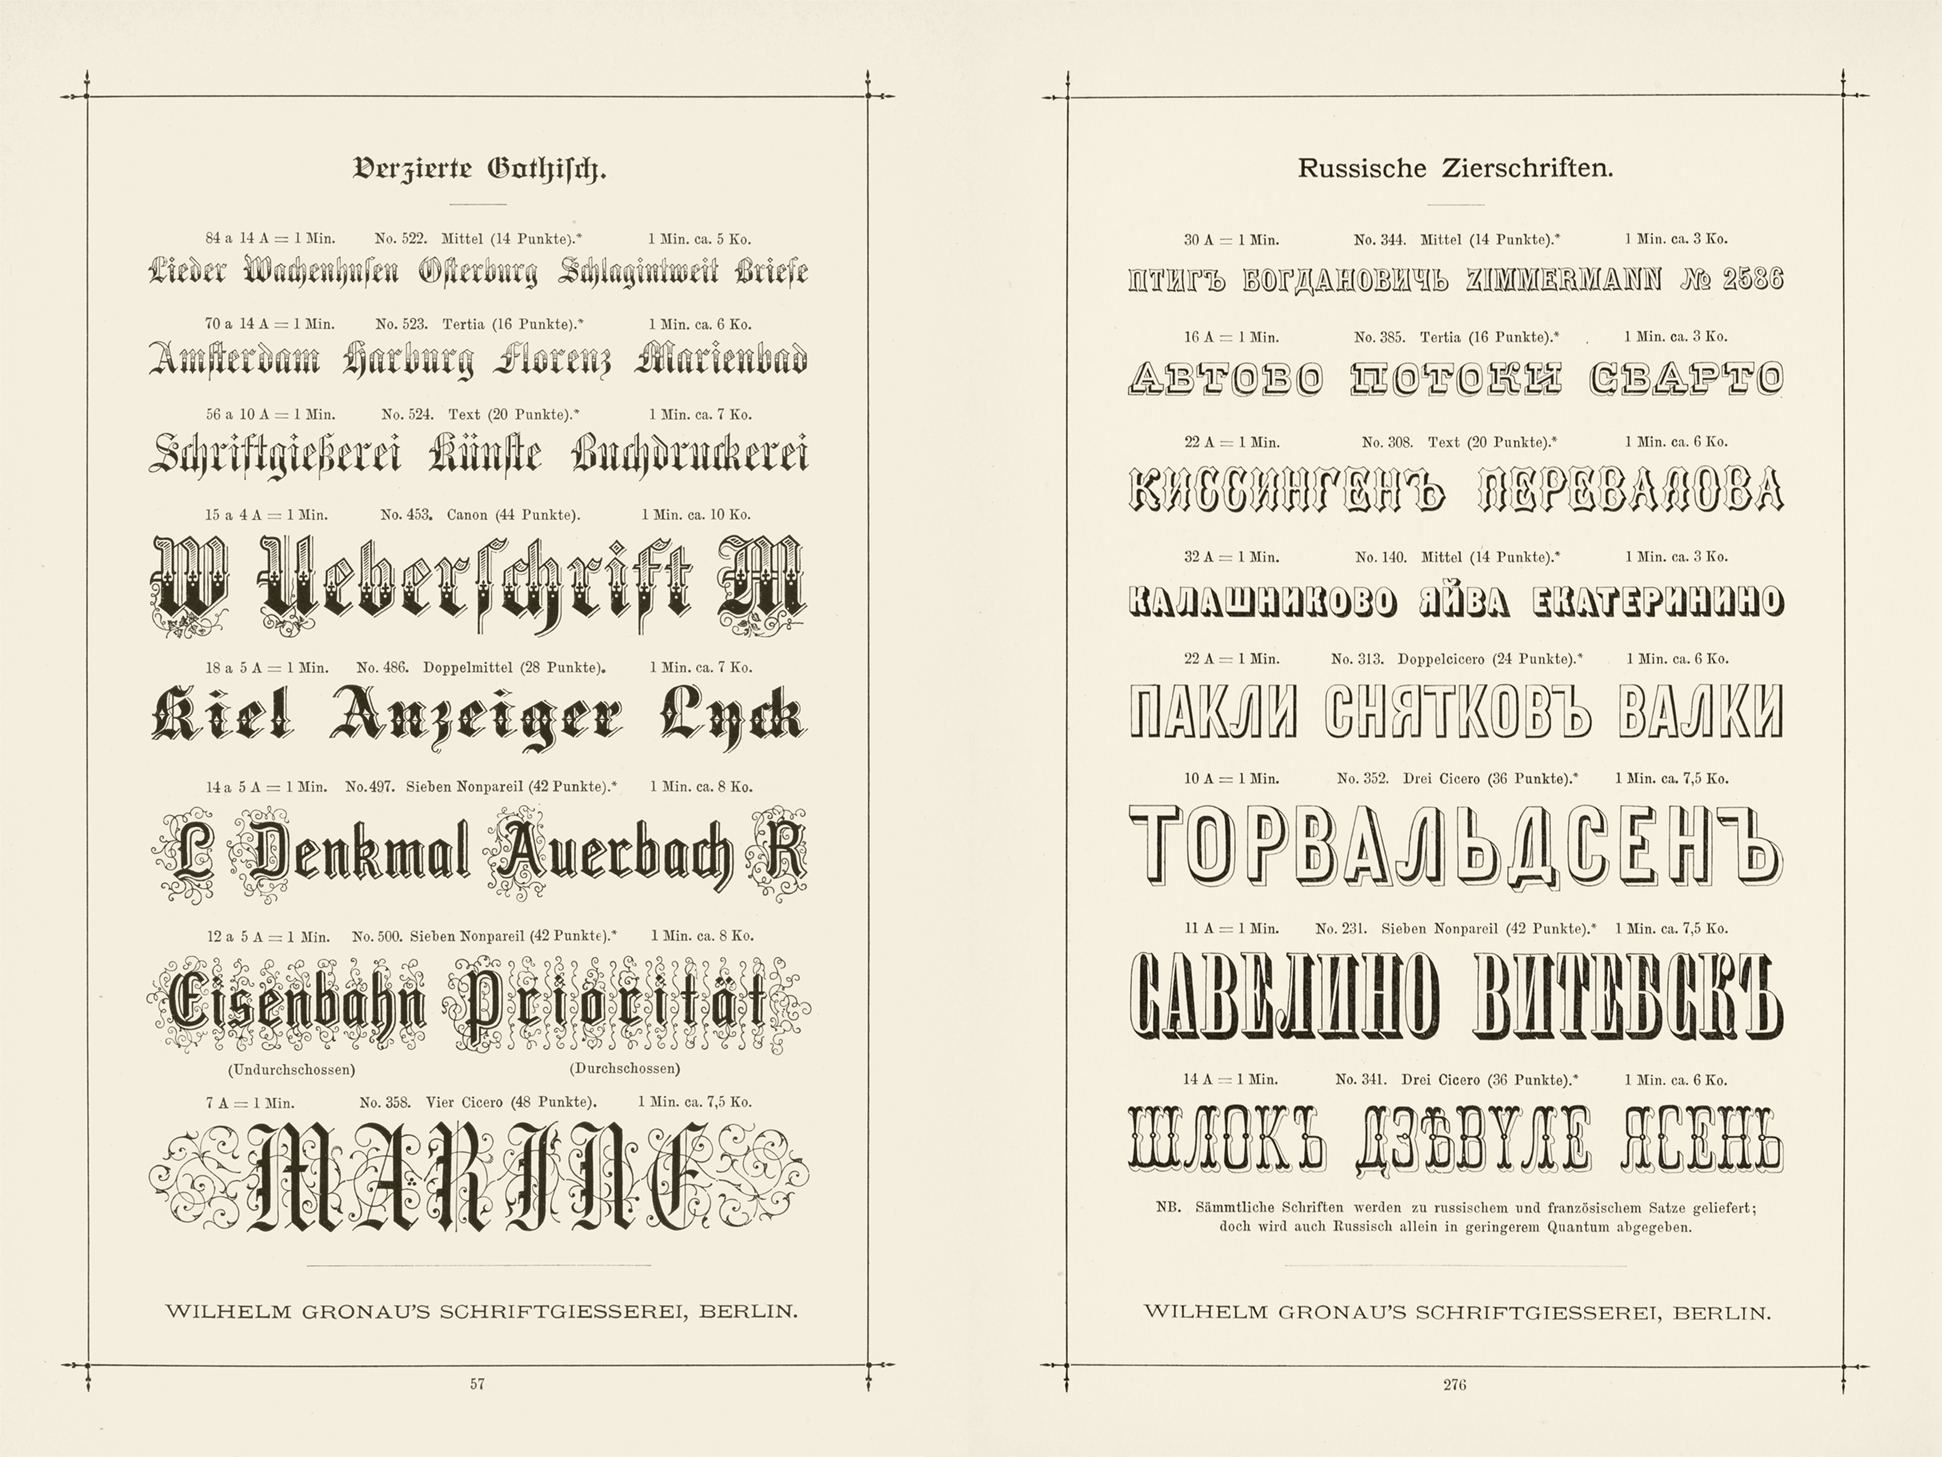 Verzierte Gothisch.
84 a 14 A = 1 Min. No. 522. Mittel (14 Punkte).* 1 Min. ca. 5 Ko.
Lieder Wachenhusen Osterburg Schlagintweit Briefe
70 a 14 A = 1 Min. No. 523. Tertia (16 Punkte).* 1 Min. ca. 6 Ko.
Amsterdam Harburg Florenz Marienbad
56 a 10 A = 1 Min. No. 524. Text (20 Punkte).* 1 Min. ca. 7 Ko.
Schriftgießerei Künste Buchdruckerei
15 a 4 A = 1 Min. No. 453. Canon (44 Punkte). 1 Min. ca. 10 Ko.
W Ueberschrift M
18 a 5 A = 1 Min. No. 486. Doppelmittel (28 Punkte). 1 Min. ca. 7 Ko.
Kiel Anzeiger Lyck
14 a 5 A = 1 Min. No. 497. Sieben Nonpareil (42 Punkte).* 1 Min. ca. 8 Ko.
L Denkmal Auerbach R
12 a 5 A = 1 Min. No. 500. Sieben Nonpareil (42 Punkte).* 1 Min. ca. 8 Ko.
Eisenbahn Priorität
(Undurchschossen) (Durchschossen)
7 A = 1 Min. No. 358. Vier Cicero (48 Punkte). 1 Min. ca. 7,5 Ko.
MARINE
WILHELM GRONAU'S SCHRIFTGIESSEREI, BERLIN.
57
Russische Zierschriften.
30 A = 1 Min. No. 344. Mittel (14 Punkte).* 1 Min. ca. 3 Ko.
ПТИГЪ БОГДАНОВИЧЬ ZIMMERMANN № 2586
16 A = 1 Min. No. 385. Tertia (16 Punkte).* 1 Min. ca. 3 Ko.
АВТОВО ПОТОКИ СВАРТО
22 A = 1 Min. No. 308. Text (20 Punkte).* 1 Min. ca. 6 Ko.
КИССИНГЕНЪ ПЕРЕВАЛОВА
32 A = 1 Min. No. 140. Mittel (14 Punkte).* 1 Min. ca. 3 Ko.
КАЛАШНИКОВО ЯЙВА ЕКАТЕРИНИНО
22 A = 1 Min. No. 313. Doppelcicero (24 Punkte).* 1 Min. ca. 6 Ko.
ПАКЛИ СНЯТКОВЪ ВАЛКИ
10 A = 1 Min. No. 352. Drei Cicero (36 Punkte).* 1 Min. ca. 7,5 Ko.
ТОРВАЛЬДСЕНЪ
11 A = 1 Min. No. 231. Sieben Nonpareil (42 Punkte).* 1 Min. ca. 7,5 Ko.
САВЕЛИНО ВИТЕБСКЪ
14 A = 1 Min. No. 341. Drei Cicero (36 Punkte).* 1 Min. ca. 6 Ko.
ШЛОКЪ ДЗѢВУЛЕ ЯСЕНЬ
NB. Sämmtliche Schriften werden zu russischem und französischem Satze geliefert;
doch wird auch Russisch allein in geringerem Quantum abgegeben.
WILHELM GRONAU'S SCHRIFTGIESSEREI, BERLIN.
276